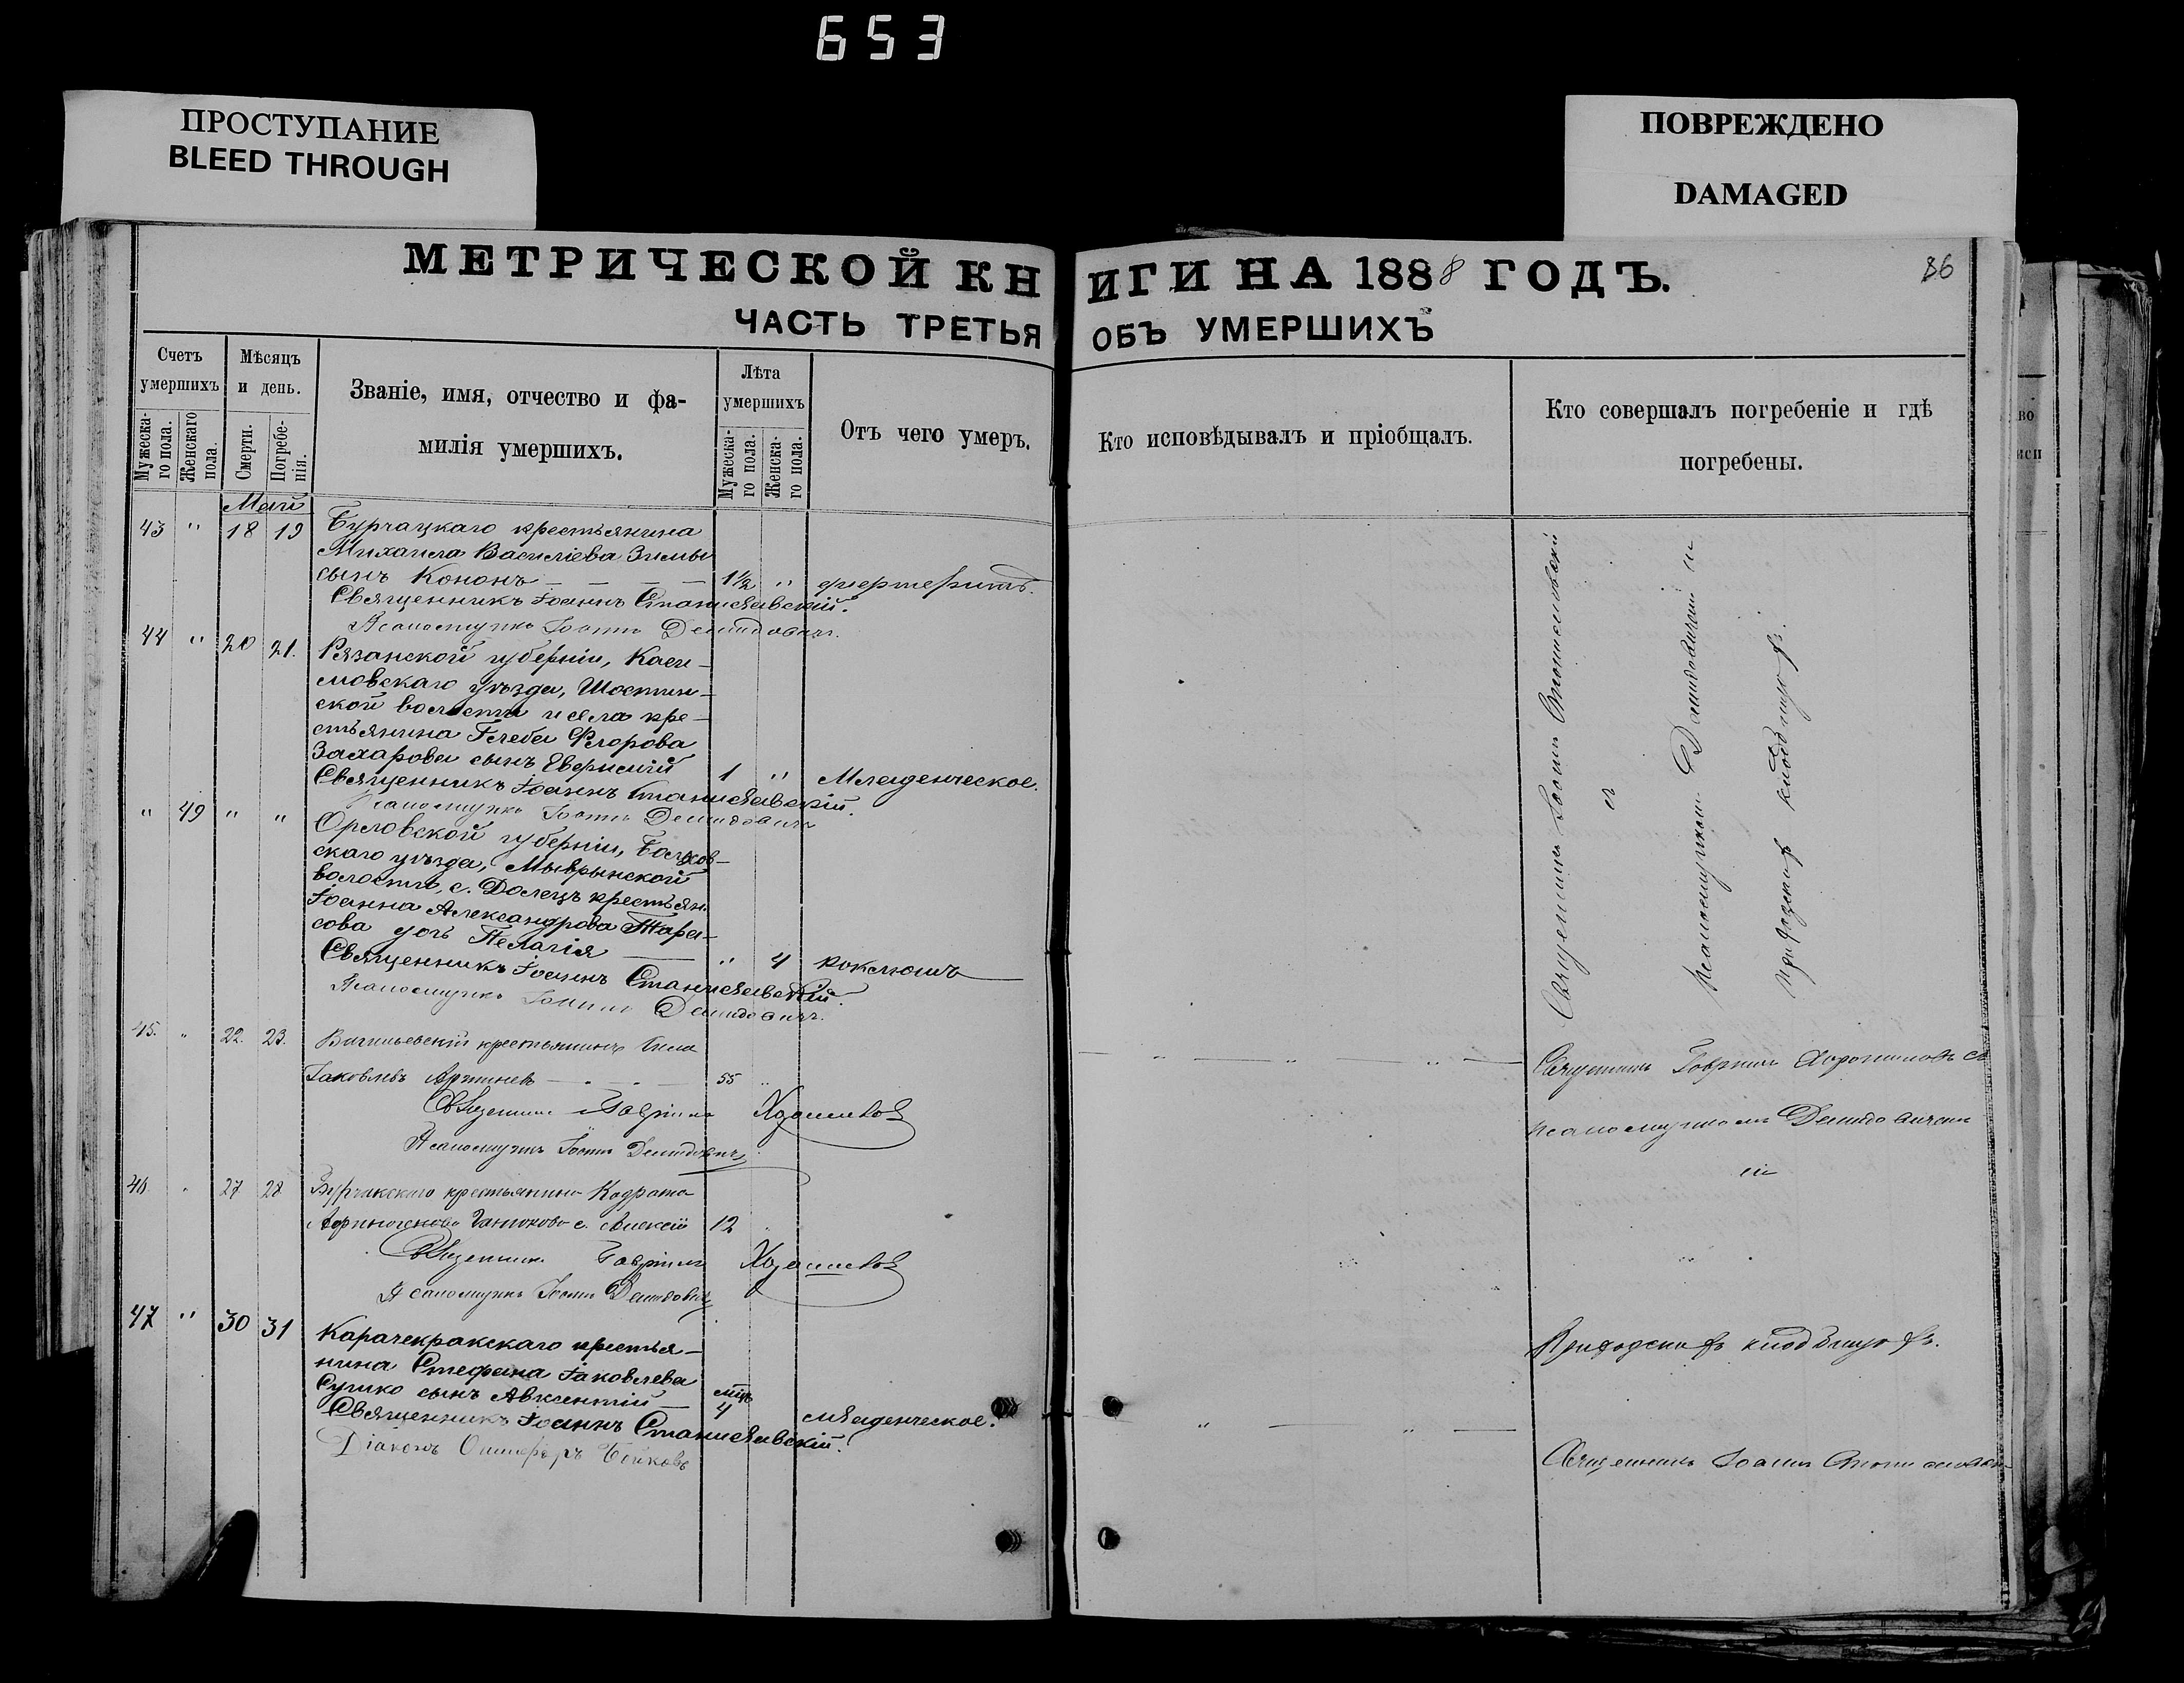 653
ПРОСТУПАНИЕ
BLEED THROUGH
ПОВРЕЖДЕНО
DAMAGED
МЕТРИЧЕСКОЙ КНИГИ НА 1888 ГОДЪ.
36
ЧАСТЬ ТРЕТЬЯ ОБЪ УМЕРШИХЪ
Счетъ умершихъ
Мужеска-го пола.
Женскаго пола.
Мѣсяцъ и день.
Смерти.
Погребе-нія.
Званіе, имя, отчество и фа-
милія умершихъ.
Лѣта умершихъ
Мужеска-го пола.
Женска-го пола.
Отъ чего умеръ.
Кто исповѣдывалъ и пріобщалъ.
Кто совершалъ погребеніе и гдѣ
погребены.
Май
43 " 18 19 Бурчацкаго крестьянина
Михаила Василіева Зимы
сынъ Кононъ — — — — 1½ "
Священникъ Іоаннъ Станиславскій.
Псаломщикъ Іоаннъ Демидовичъ.
44 " 20 21. Рязанской губерніи, Каси-
мовскаго уѣзда, Шостин-
ской волости и села кре-
стьянина Глеба Флорова
Захарова сынъ 1 " Младенческое.
Священникъ Іоаннъ Станиславскій.
Псаломщикъ Іоаннъ Демидовичъ
" 49 " " Орловской губерніи, Болхов-
скаго уѣзда,
волости, с. Долецъ крестьян.
Іоанна Александрова Тара-
сова дочь Пелагія — " 4 коклюшъ
Священникъ Іоаннъ Станиславскій.
Псаломщикъ Іоаннъ Демидовичъ.
45. " 22. 23. крестьянинъ
Іаковлевъ 55 "
Священникъ Гавріилъ
Псаломщикъ Іоаннъ Демидовичъ
46 " 27 28 Бурчакскаго крестьянина Кодрата
с. Алексій 12
Священникъ Гавріилъ
Псаломщикъ Іоаннъ Демидовичъ
47 " 30 31 Карачекракскаго крестья-
нина Стефана Іаковлева
сынъ Авксентій — мѣс. 4 младенческое.
Священникъ Іоаннъ Станиславскій.
Діаконъ Бойковъ
Священникъ Іоаннъ Станиславскій
съ
псаломщикомъ Демидовичемъ на
приходскомъ кладбищѣ.
Священникъ Гавріилъ съ
псаломщикомъ Демидовичемъ
на
Приходскомъ кладбищѣ.
Священникъ Іоаннъ